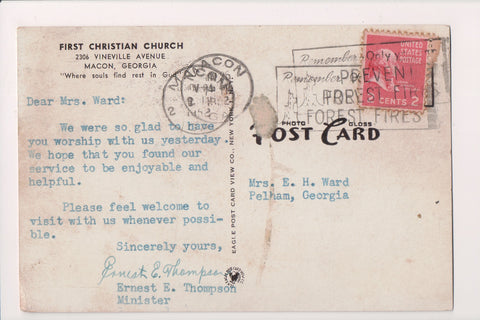 FIRST CHRISTIAN CHURCH
2306 VINEVILLE AVENUE
MACON, GEORGIA
"Where souls find rest in God"
MACON
Remember Only
Remember
PREVENT
FOREST FIRES
FOREST FIRES
UNITED STATES
POSTAGE
2 CENTS 2
Dear Mrs. Ward:
We were so glad to have
you worship with us yesterday.
We hope that you found our
service to be enjoyable and
helpful.
Please feel welcome to
visit with us whenever possi-
ble.
Sincerely yours,
Ernest E. Thompson
Ernest E. Thompson
Minister
EAGLE POST CARD VIEW CO., NEW YORK
PHOTO GLOSS
POST CARD
Mrs. E. H. Ward
Pelham, Georgia